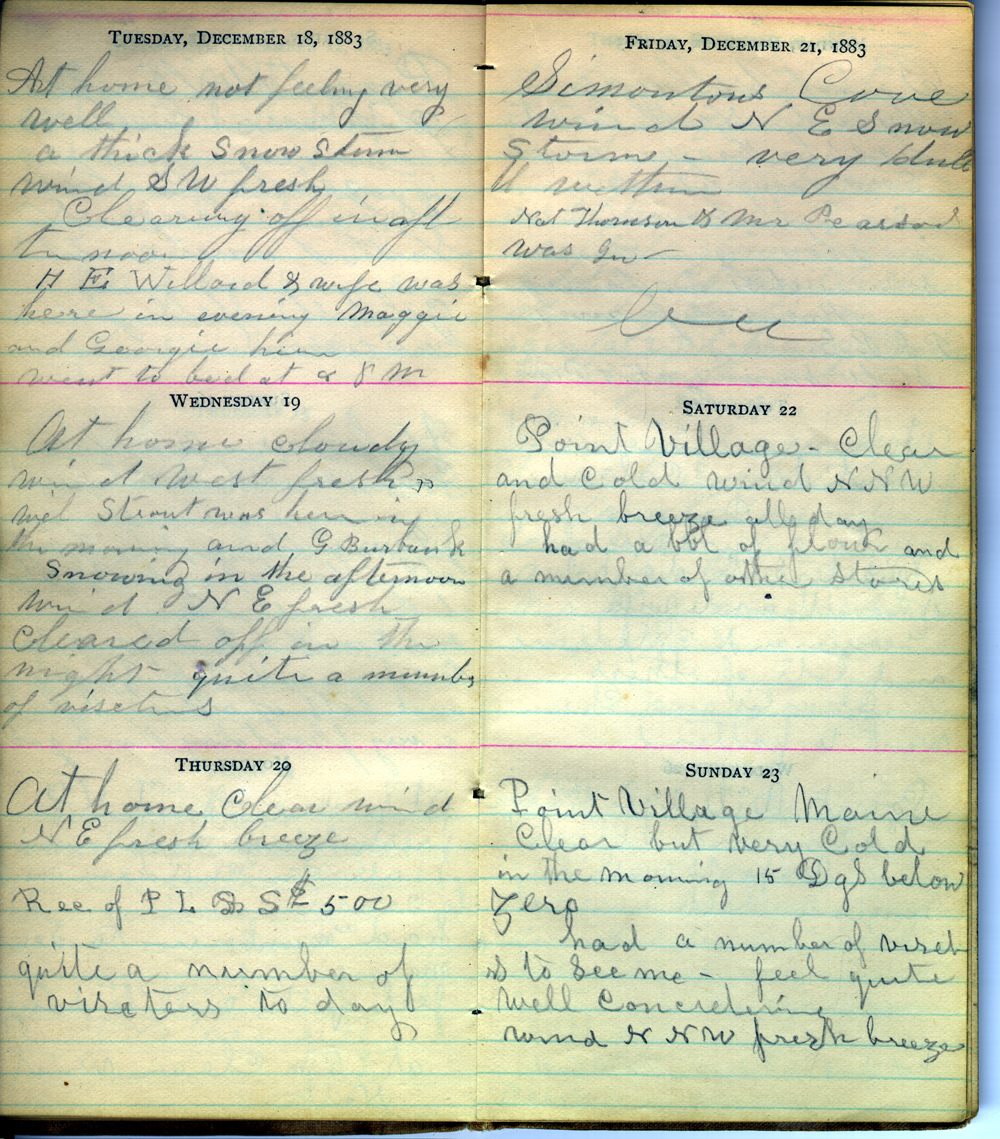 TUESDAY, DECEMBER 18, 1883
At home not feeling very
well
a thick Snow Storm
wind S W fresh
Clearing off in aft
er noon
H E Willard & wife was
here in evening Maggie
and Georgie
went to bed at 8 P M
WEDNESDAY 19
At home cloudy
wind West fresh
Strout was here in
the morning and G Burbank
Snowing in the afternoon
wind N E fresh
Cleared off in the
night quite a number
of viseters
THURSDAY 20
At home Clear wind
N E fresh breeze
Rec of P L S $5 00
quite a number of
viseters to day
FRIDAY, DECEMBER 21, 1883
Simontons Cove
wind N E Snow
Storm - very dull
wether
Nat Thomson & Mr
was in
SATURDAY 22
Point Village - Clear
and Cold wind N N W
fresh breeze all day
had a bbl of flour and
a number of other Stores
SUNDAY 23
Point Village Maine
Clear but very Cold
in the morning 15 Dgs below
Zero
had a number of viset
rs to See me - feel quite
well Concredering
wind N N W fresh breeze